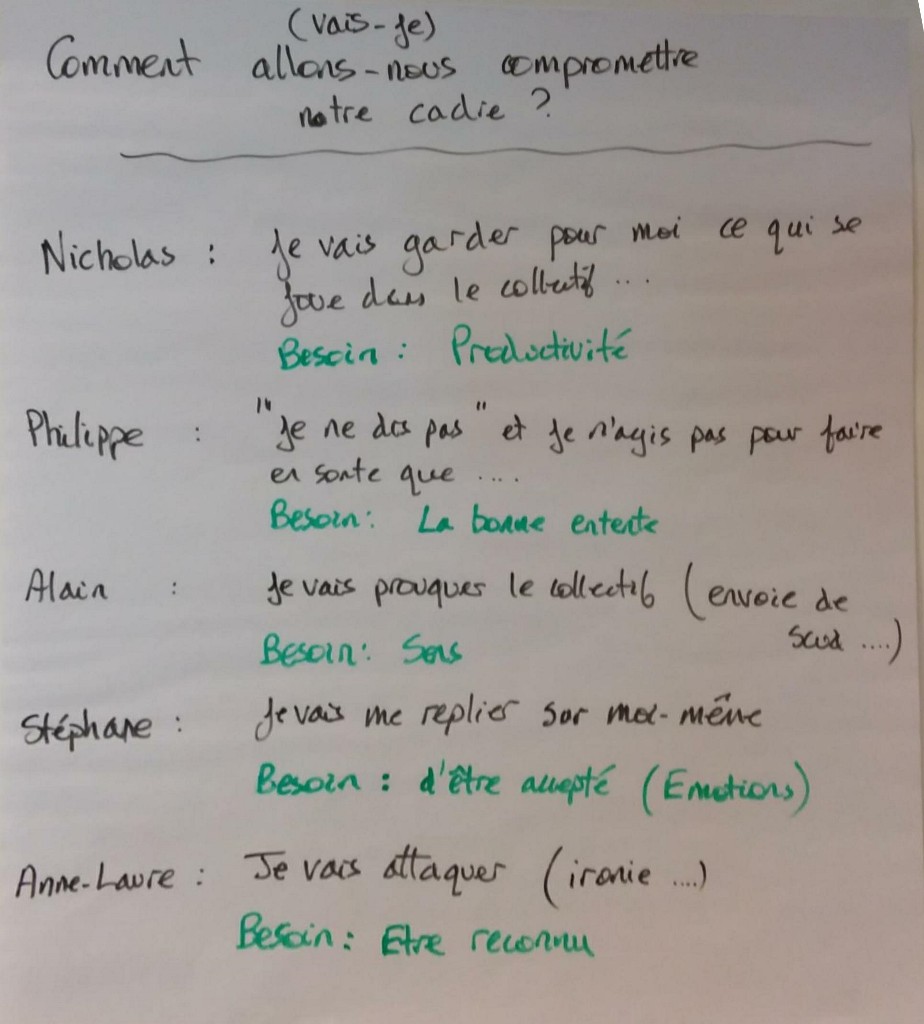 (vais-je)
Comment allons-nous compromettre
notre cadie ?
Nicholas : Je vais garder pour moi ce qui se
joue dans le collectif ...
Besoin : Productivité
Philippe : "Je ne dis pas" et je n'agis pas pour faire
en sorte que ....
Besoin : La bonne entente
Alain : Je vais provoquer le collectif (envoie de
scud ....)
Besoin : Sens
Stéphane : Je vais me replier sur moi-même
Besoin : d'être accepté (Emotions)
Anne-Laure : Je vais attaquer (ironie ....)
Besoin : Etre reconnu